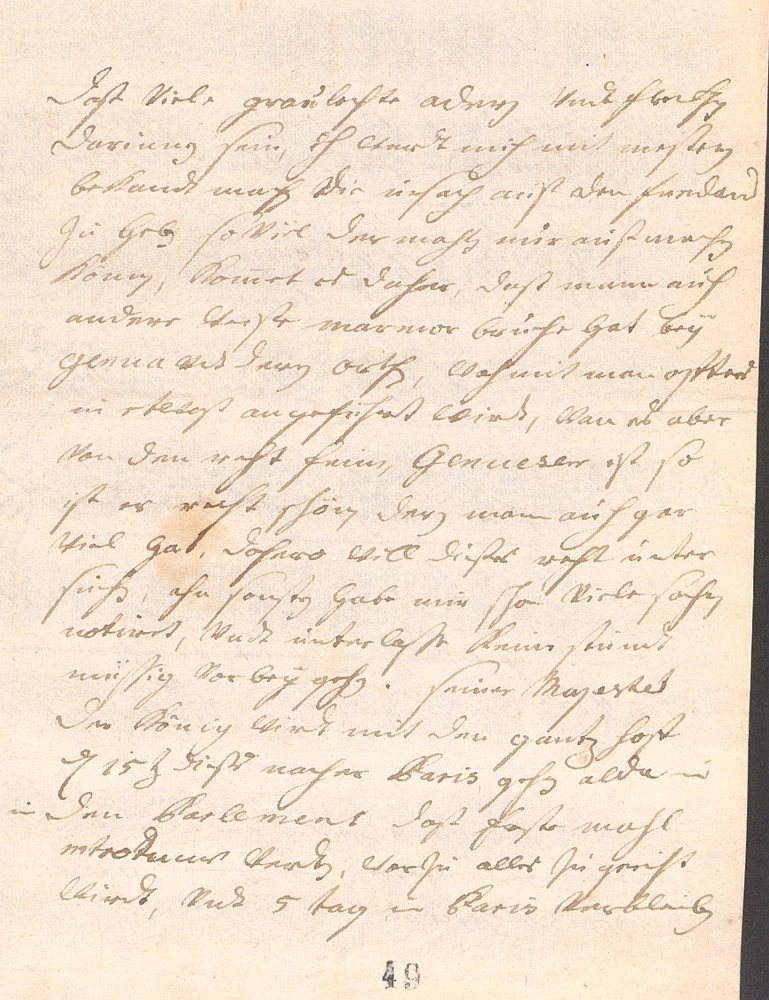 daß viele graulechte adern undt flecken
darinnen sein, ich werdt mich mit meisten
bekandt machen die ursach auß den fundament
zu haben so viel der mahlen mir auß machen
können, kommet es daher, daß mann auch
andere weiße marmor brüche hat bey
genua und deren orthen, wohmit man offters
in etwaß angeführt wirdt, wan es aber
von den recht feinen Genueser ist so
ist er recht schön deren man auch gar
viel hat, dahero will dießes recht unter
suchen, ohn sonsten habe mir schon viele sachen
notiret, undt unterlasse keine stundt
müssig vorbey gehen. seiner Majestet
der König wirdt mit den gantzen hoff
den 15t dießes nacher Paris gehen alda
in den Parlement daß erste mahl
introduciret werden, worzu alles zu gericht
wirdt, undt 5 tag in Paris verbleiben
49